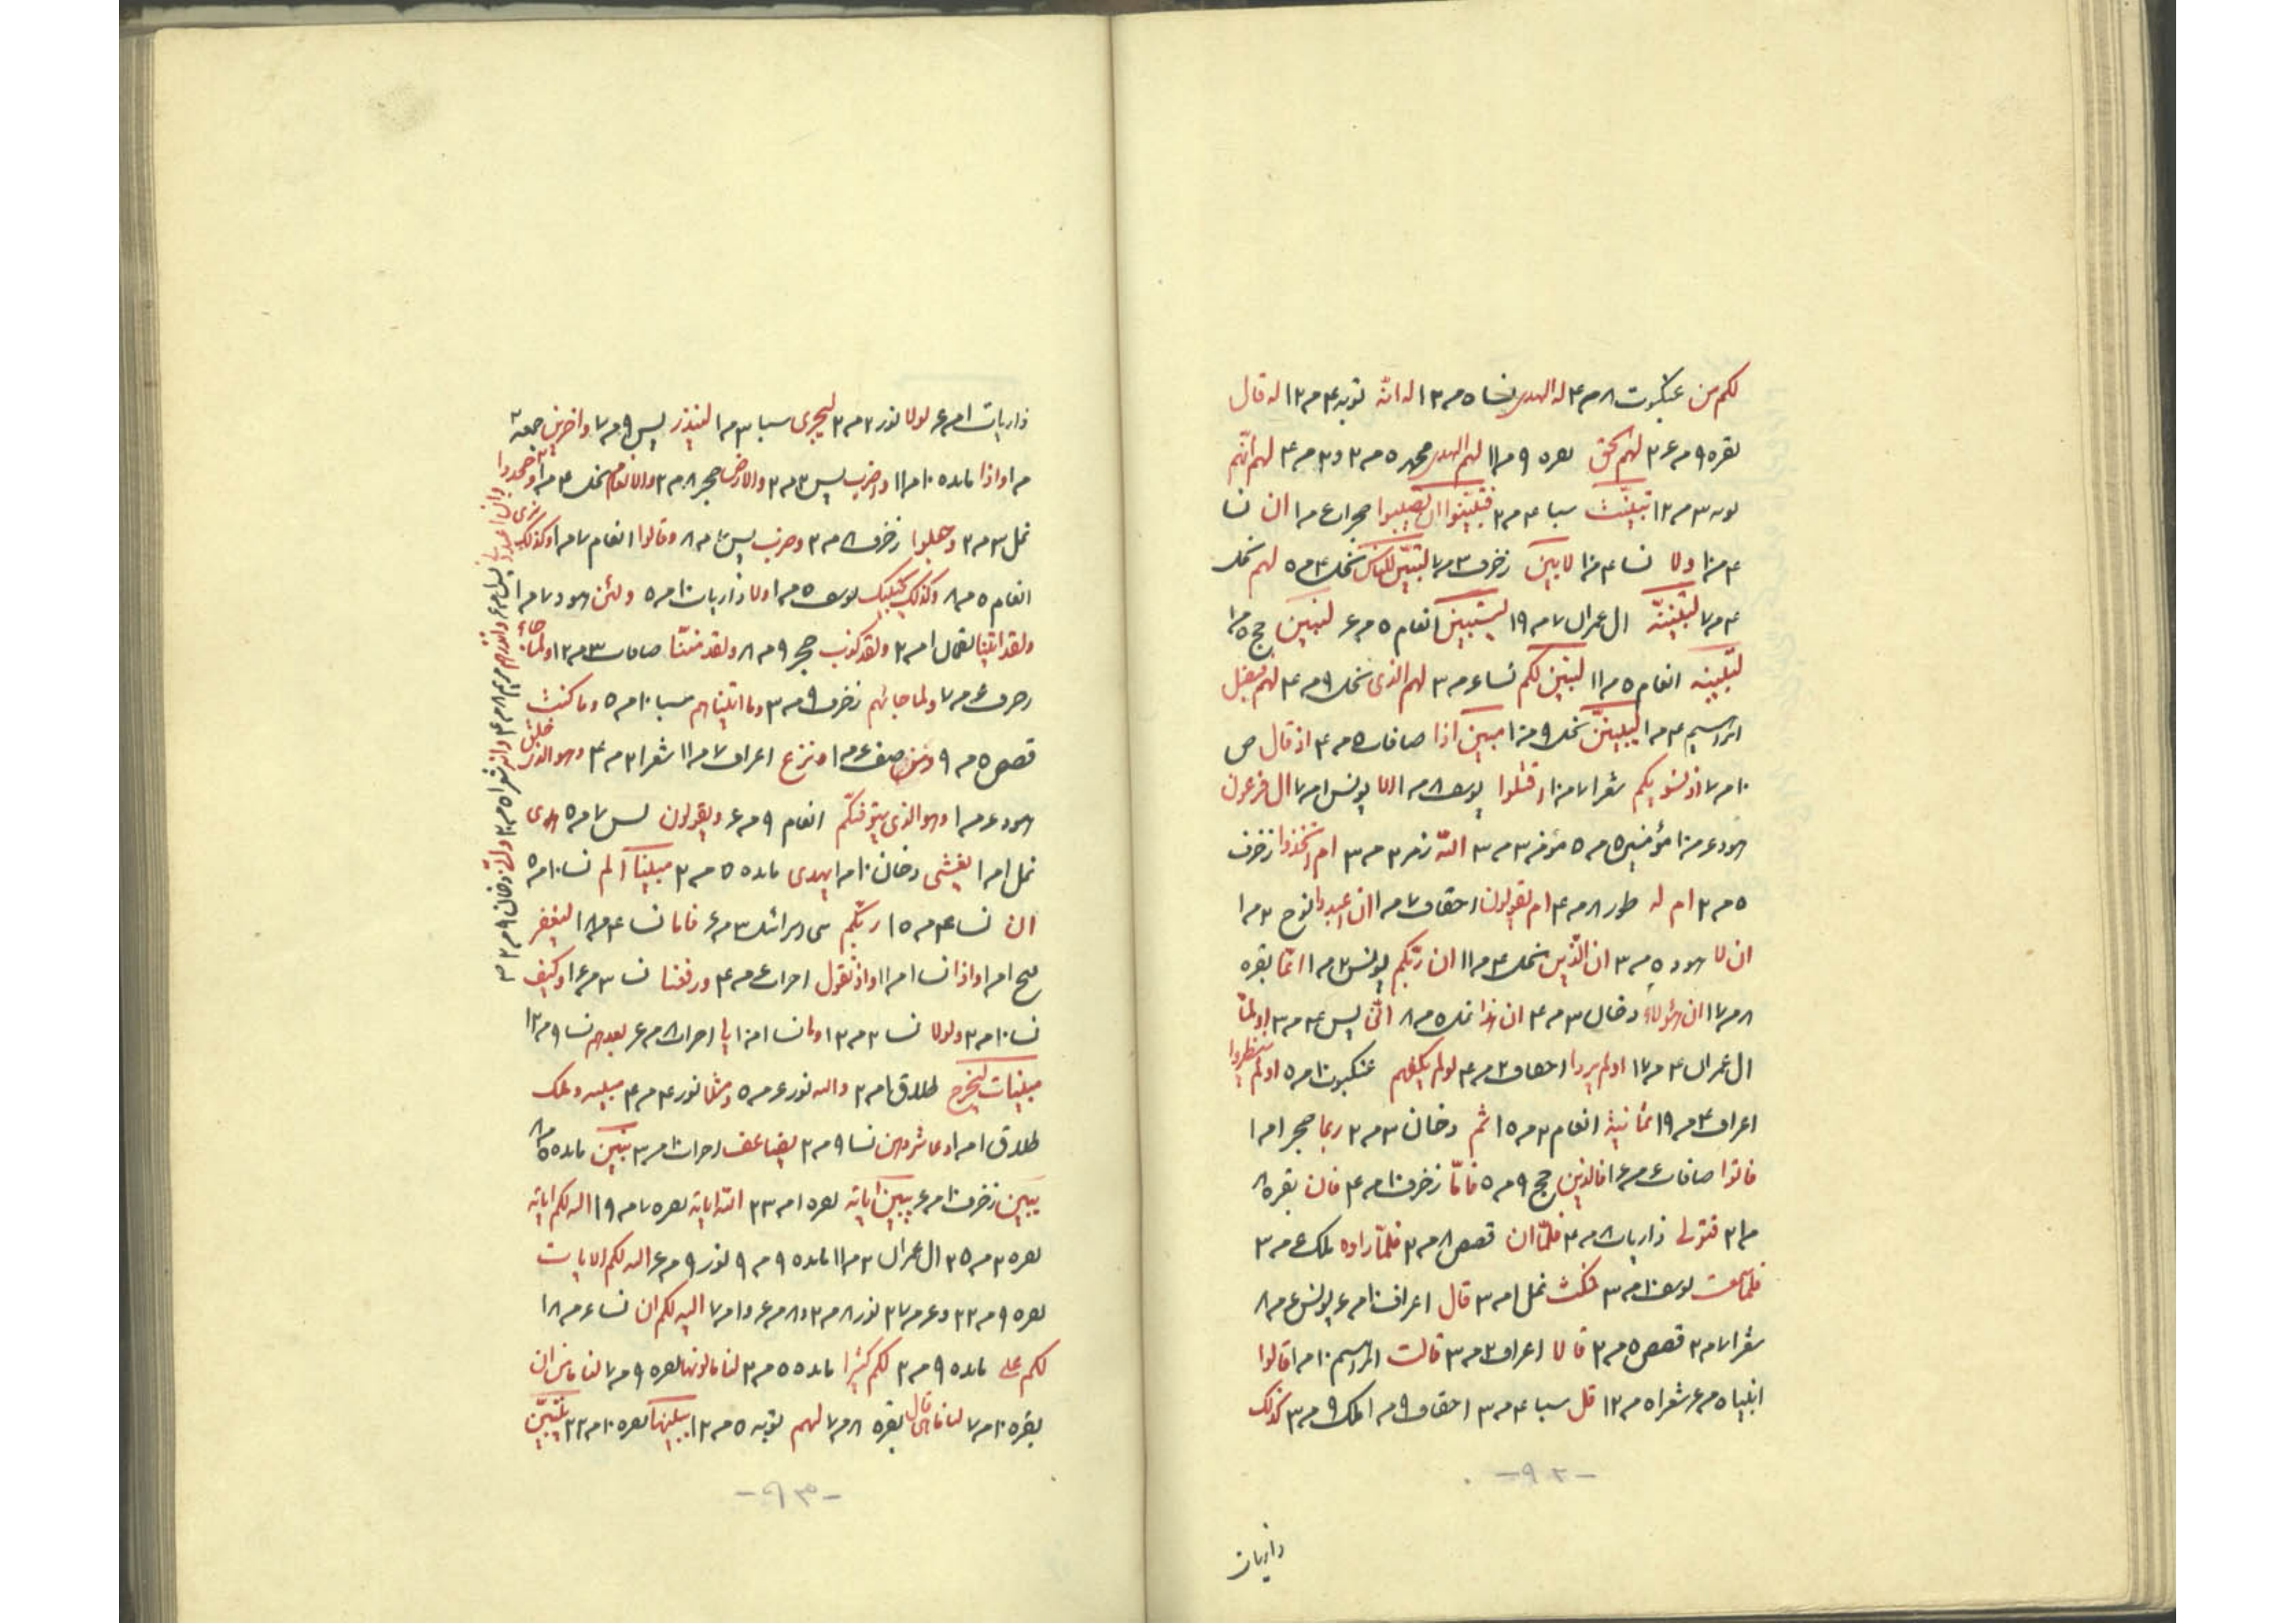 لکم من عنکبوت ۸ مر ۴ له الهدی نسا ۵ مر ۱۳ له انه توبه ۴ مر ۱۲ له قال
بقره ۹ مر ۳۶ لهم الحق بقره ۹ مر ۱۱ لهم الهدی محمد ۵ مر ۲ و ۳ مر ۴ لهم انهم
توبه ۳ مر ۱۲ تبینت سبا ۴ مر ۲ فتبینوا ان تصیبوا حجرات ۶ مر ۱ ان نسا
۴ مر ۱۰ ولا نسا ۴ مر ۱۰ لابین زخرف ۳ مر ۷ لتبین للناس نحل ۴ مر ۵ لهم نحل
۴ مر ۷ لتبیننه ال عمران ۷ مر ۱۹ لیستبین انعام ۵ مر ۶ لنبین حج ۵ مر ۱
لنبینه انعام ۵ مر ۱۱ لیبین لکم نساء ۶ مر ۳ لهم الذی نحل ۹ مر ۴ لهم فیضل
ابراهیم ۴ مر ۱ لیبینن نحل ۹ مر ۱۰ مبین اذا صافات ۵ مر ۴ اذ قال ص
۱۰ مر ۷ اذ نسویکم شعرا ۷ مر ۱۰ اقتلوا یوسف ۸ مر ۱ الا یونس ۱ مر ۷ ال فرعون
هود ۶ مر ۱۰ مؤمنین ۵ مر ۵ مؤمن ۳ مر ۳ الله زمر ۲ مر ۳ ام اتخذوا زخرف
۵ مر ۲ ام له طور ۸ مر ۴ ام یقولون احقاف ۷ مر ۱ ان اعبدوا نوح ۲ مر ۱
ان لا هود ۵ مر ۳ ان الذین نحل ۴ مر ۱۱ ان ربکم یونس ۲ مر ۱ انما بقره
۸ مر ۱۷ ان هؤلاء دخان ۳ مر ۴ ان هذا نمل ۵ مر ۸ انی یس ۴ مر ۳ اولما
ال عمران ۴ مر ۱۷ اولم یروا احقاف ۲ مر ۴ اولم یکفهم عنکبوت ۱۰ مر ۵ اولم ینظروا
اعراف ۴ مر ۱۹ ثمانیة انعام ۲ مر ۱۵ ثم دخان ۳ مر ۲ ربما حجر ۱ مر ۱
فاتوا صافات ۶ مر ۱۶ فالذین حج ۹ مر ۵ فاما زخرف ۱۰ مر ۴ فان بقره ۸
مر ۲۱ فتولی ذاریات ۸ مر ۴ فلما ان قصص ۸ مر ۲ فلما راوه ملک ۶ مر ۳
فلما سمعت یوسف ۱۰ مر ۳ فمکث نمل ۱ مر ۳ قال اعراف ۱۰ مر ۶ یونس ۶ مر ۸
شعرا ۷ مر ۲ قصص ۵ مر ۳ قالا اعراف ۲ مر ۳ قالت ابراهیم ۱۰ مر ۱ قالوا
انبیا ۵ مر ۶ شعرا ۵ مر ۱۲ قل سبا ۴ مر ۳ احقاف ۹ مر ۱ ملک ۹ مر ۳ کذلک
-۹۲-
ذاریات
ذاریات ۱ مر ۶ لولا نور ۲ مر ۲ لیجزی سبا ۳ مر ۱ لینذر یس ۹ مر ۷ واخرین جمعه ۲
مر ۱ واذا مائده ۱۰ مر ۱۱ واضرب یس ۳ مر ۲ والارض حجر ۸ مر ۲ والانعام نحل ۴ مر ۱ وجحدوا
نمل ۳ مر ۲ وجعلوا زخرف ۸ مر ۲ وضرب یس ۷ مر ۸ وقالوا انعام ۷ مر ۱ وکذلک نری
انعام ۵ مر ۸ وکذلک یجتبیک یوسف ۵ مر ۱ ولا ذاریات ۱۰ مر ۵ ولئن هود ۷ مر ۱
ولقد اتینا لقمان ۱ مر ۲ ولقد کذب حجر ۹ مر ۸ ولقد مننا صافات ۳ مر ۱۲ ولما جاء
زخرف ۶ مر ۷ ولما جائهم زخرف ۹ مر ۳ وما اتیناهم سبا ۱۰ مر ۵ وما کنت
قصص ۵ مر ۹ ومن صف ۶ مر ۱ ونزع اعراف ۷ مر ۱۱ شعرا ۲ مر ۴ وهو الذی خلق
هود ۶ مر ۱ وهو الذی یتوفیکم انعام ۹ مر ۶ ویقولون یس ۷ مر ۵ هدی
نمل ۱ مر ۱ یغشی دخان ۱۰ مر ۱ یهدی مائده ۵ مر ۲ مبینا الم نسا ۱۰ مر ۵
ان نسا ۴ مر ۱۵ ربکم بنی اسرائیل ۳ مر ۶ فاما نسا ۴ مر ۱۸ لیغفر
فتح ۱ مر ۱ واذا نسا ۱ مر ۱۱ واذ تقول احزاب ۶ مر ۴ ورفعنا نسا ۳ مر ۱۶ وکیف
نسا ۱۰ مر ۲ ولولا نسا ۲ مر ۱۳ وما نسا ۱ مر ۱۰ یا احزاب ۸ مر ۶ یعدهم نسا ۹ مر ۱۲
مبینات لیخرج طلاق ۱ مر ۲ والله نور ۶ مر ۵ ومثلا نور ۴ مر ۴ مبینه وتلک
طلاق ۱ مر ۱ وعاشروهن نسا ۹ مر ۲ یضاعف احزاب ۱۰ مر ۳ نبین مائده ۵ مر ۸
یبین زخرف ۱۰ مر ۶ یبین ایاته بقره ۱ مر ۲۳ الله ایاته بقره ۷ مر ۱۹ الله لکم ایاته
بقره ۲ مر ۲۵ ال عمران ۲ مر ۱۱ مائده ۹ مر ۹ نور ۹ مر ۶ الله لکم الایات
بقره ۹ مر ۲۲ و ۶ مر ۲۷ نور ۸ مر ۲ و ۸ مر ۶ و ۱ مر ۷ الله لکم ان نساء ۶ مر ۱۸
لکم علی مائده ۹ مر ۲ لکم کثیرا مائده ۵ مر ۳ لنا مالونها بقره ۹ مر ۷ لنا ماهی ان
بقره ۱۰ مر ۷ لنا ماهی قال بقره ۸ مر ۷ لهم توبه ۵ مر ۱۲ یبینها بقره ۱۰ مر ۲۲ یتبین
-۹۳-